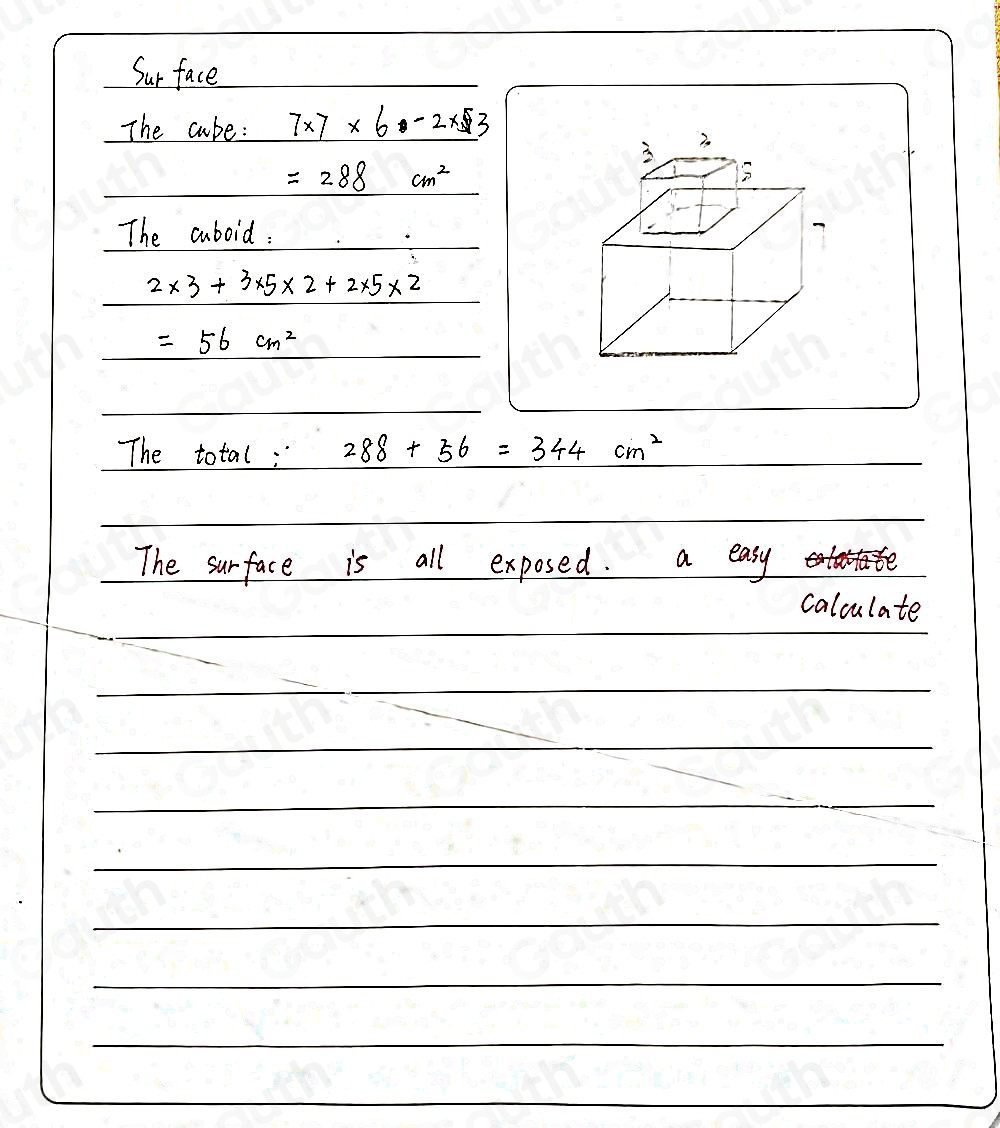 Surface
The cube: 7×7 × 6 - 2×3
= 288 cm²
The cuboid:
2×3 + 3×5×2 + 2×5×2
= 56 cm²
3 2 5
7
The total: 288 + 56 = 344 cm²
The surface is all exposed. a easy
calculate